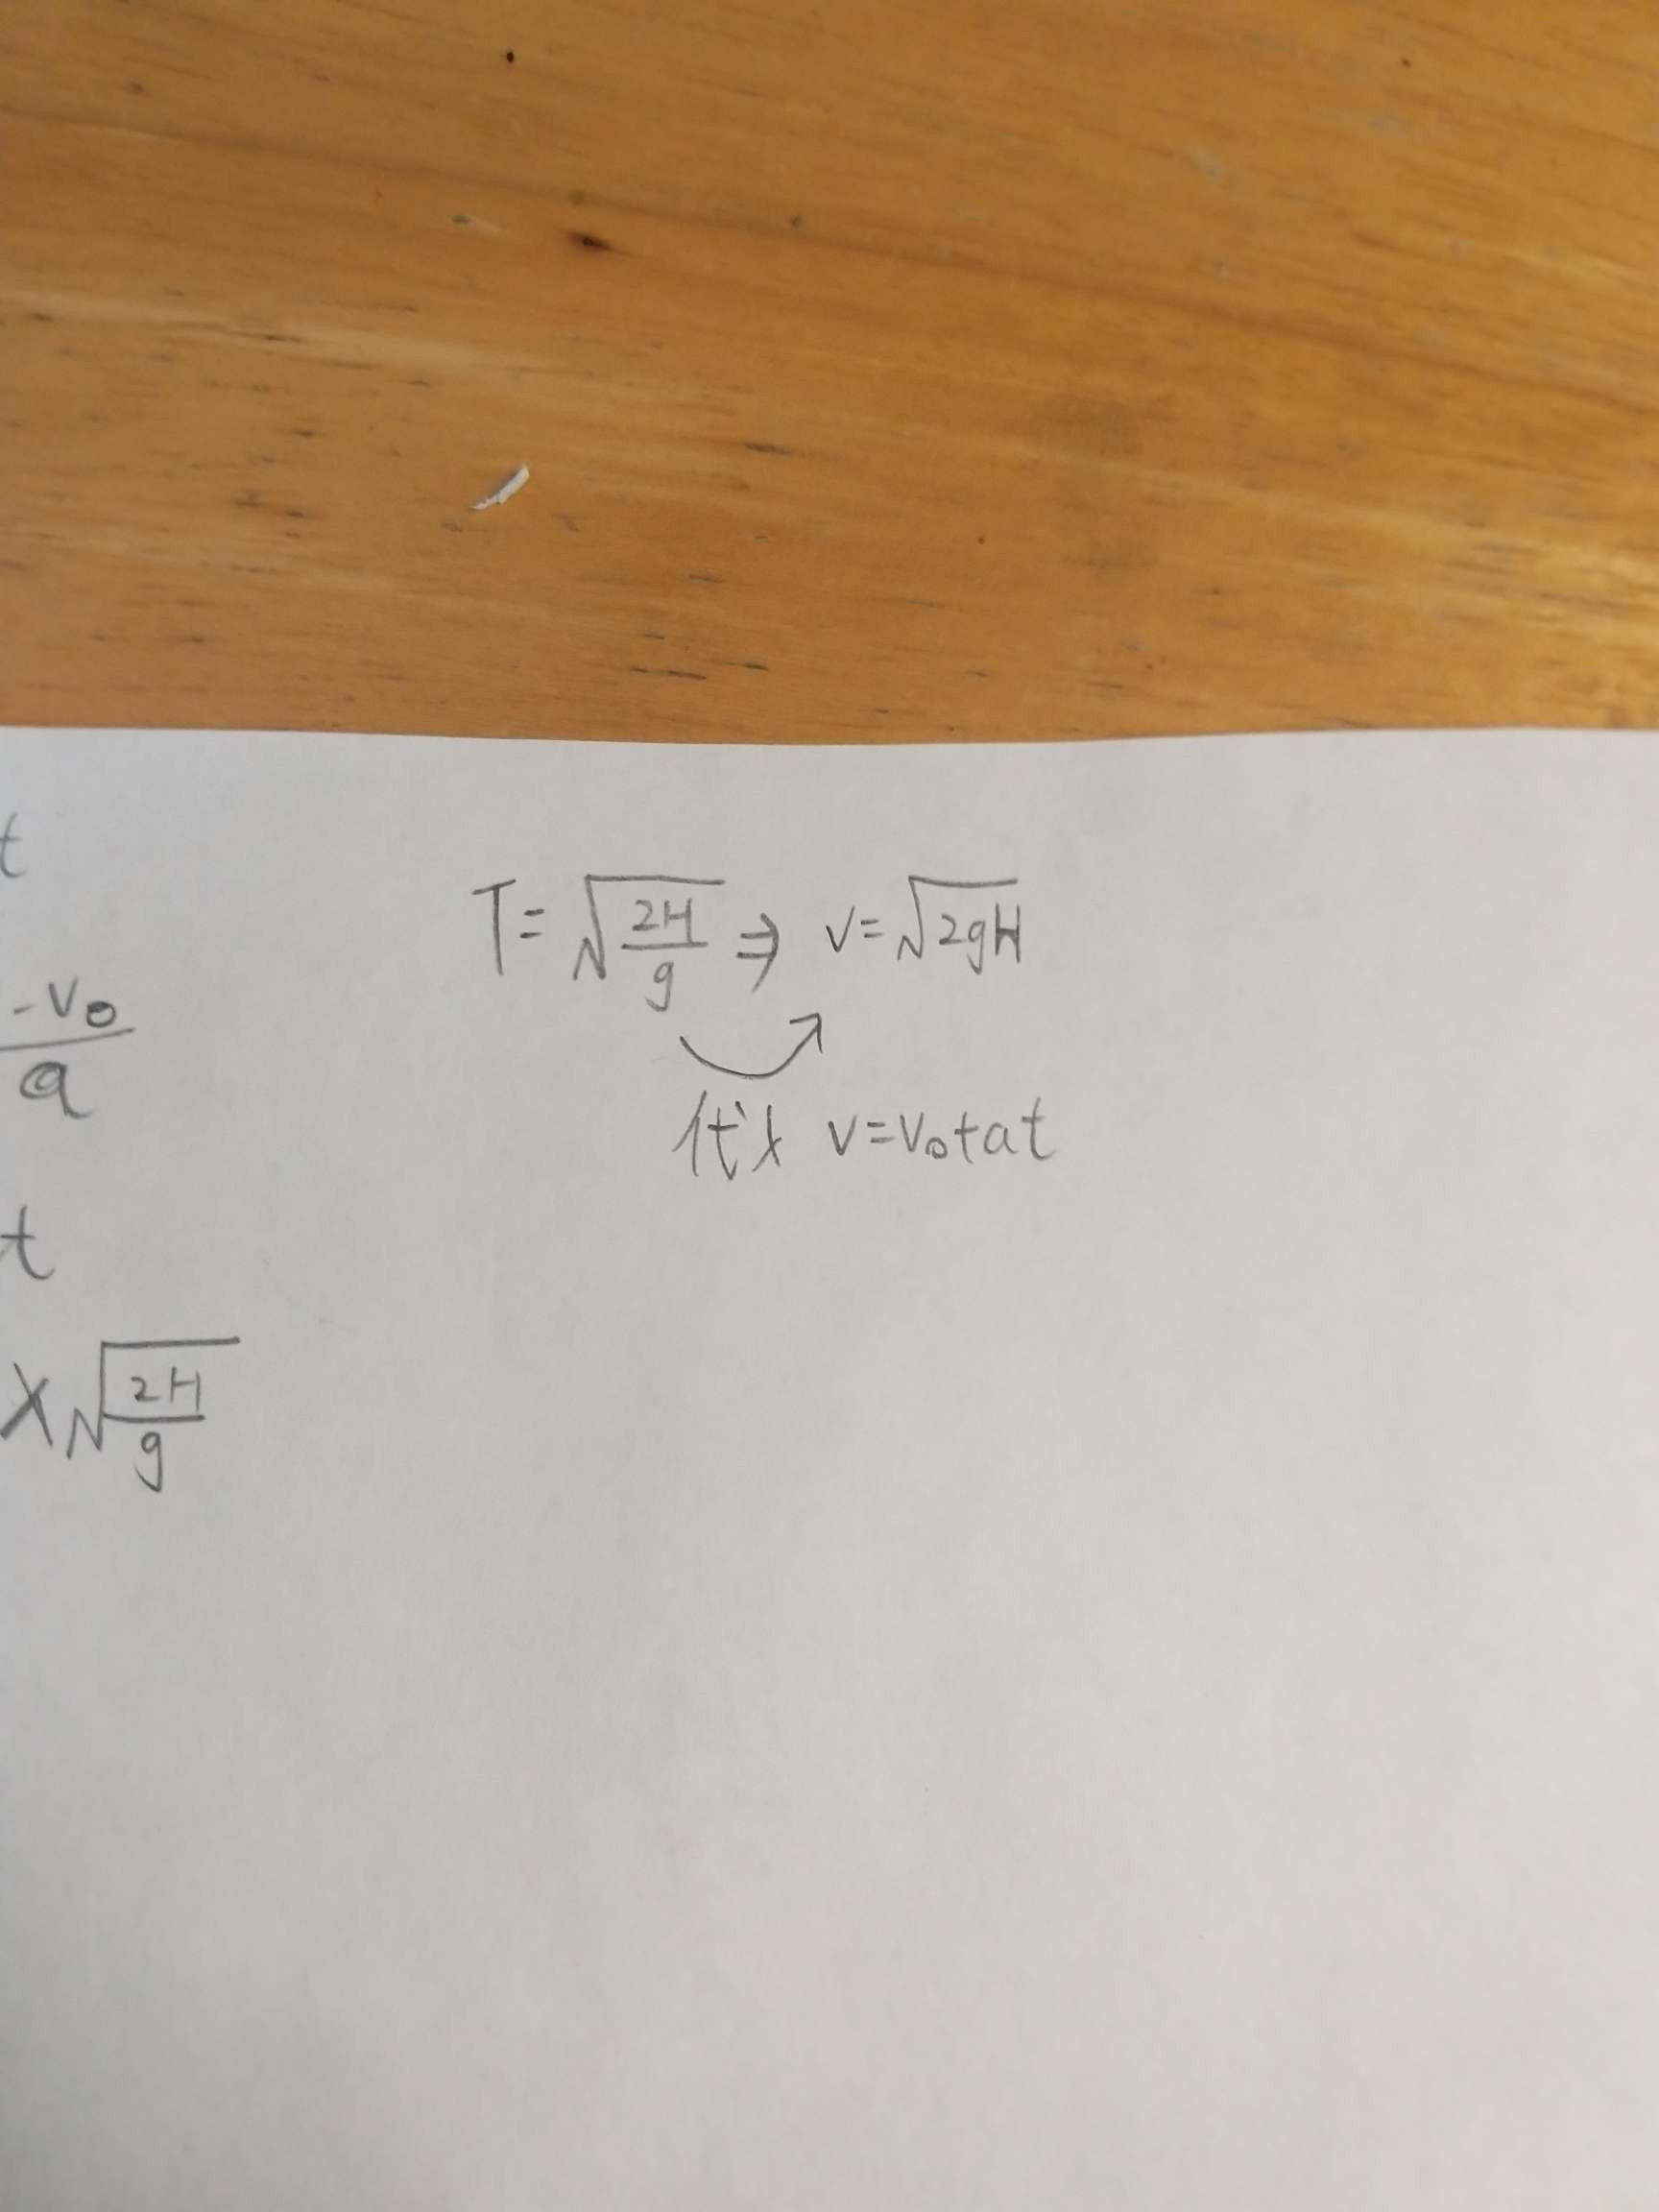 t
-v₀
a
t
×√(2H/g)
T=√(2H/g) ⇒ v=√(2gH)
代入 v=v₀+at